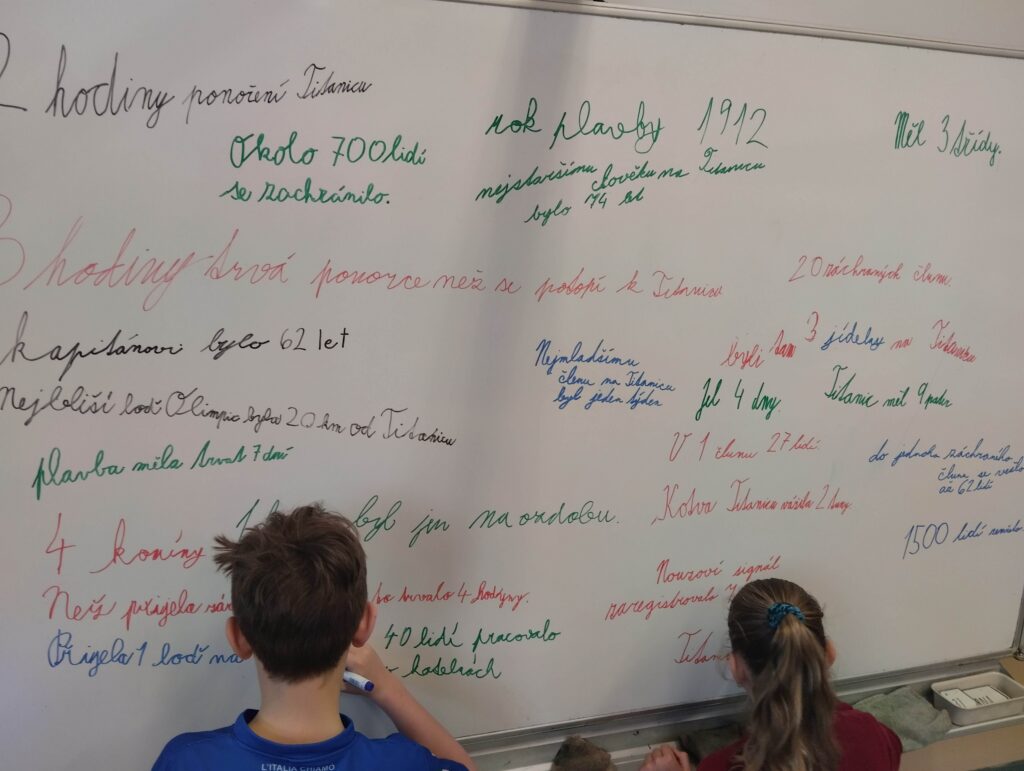 2 hodiny ponoření Titanicu
Okolo 700 lidí
se zachránilo.
rok plavby 1912
nejstaršímu člověku na Titanicu
bylo 74 let
Měl 3 třídy.
3 hodiny trvá ponorce než se potopí k Titanicu
20 záchraných člunu
kapitánovi bylo 62 let
Nejmladšímu
členu na Titanicu
byl jeden týden
byli tam 3 jídelny na Titanicu
Jel 4 dny.
Titanic měl 9 pater
Nejbliší loď Olimpic byla 20 km od Titanicu
plavba měla trvat 7 dní
V 1 člunu 27 lidí.
do jednoho záchraního
člunu se vešlo
až 62 lidí
Kotva Titanicu vážila 2 tuny.
1 byl jen na ozdobu.
1500 lidí
4 komíny
Než přijela
to trvalo 4 hodyny.
Nouzoví signál
zaregistrovalo
Přijela 1 loď na
40 lidí pracovalo
v kotelnách
L'ITALIA CHIAMÒ